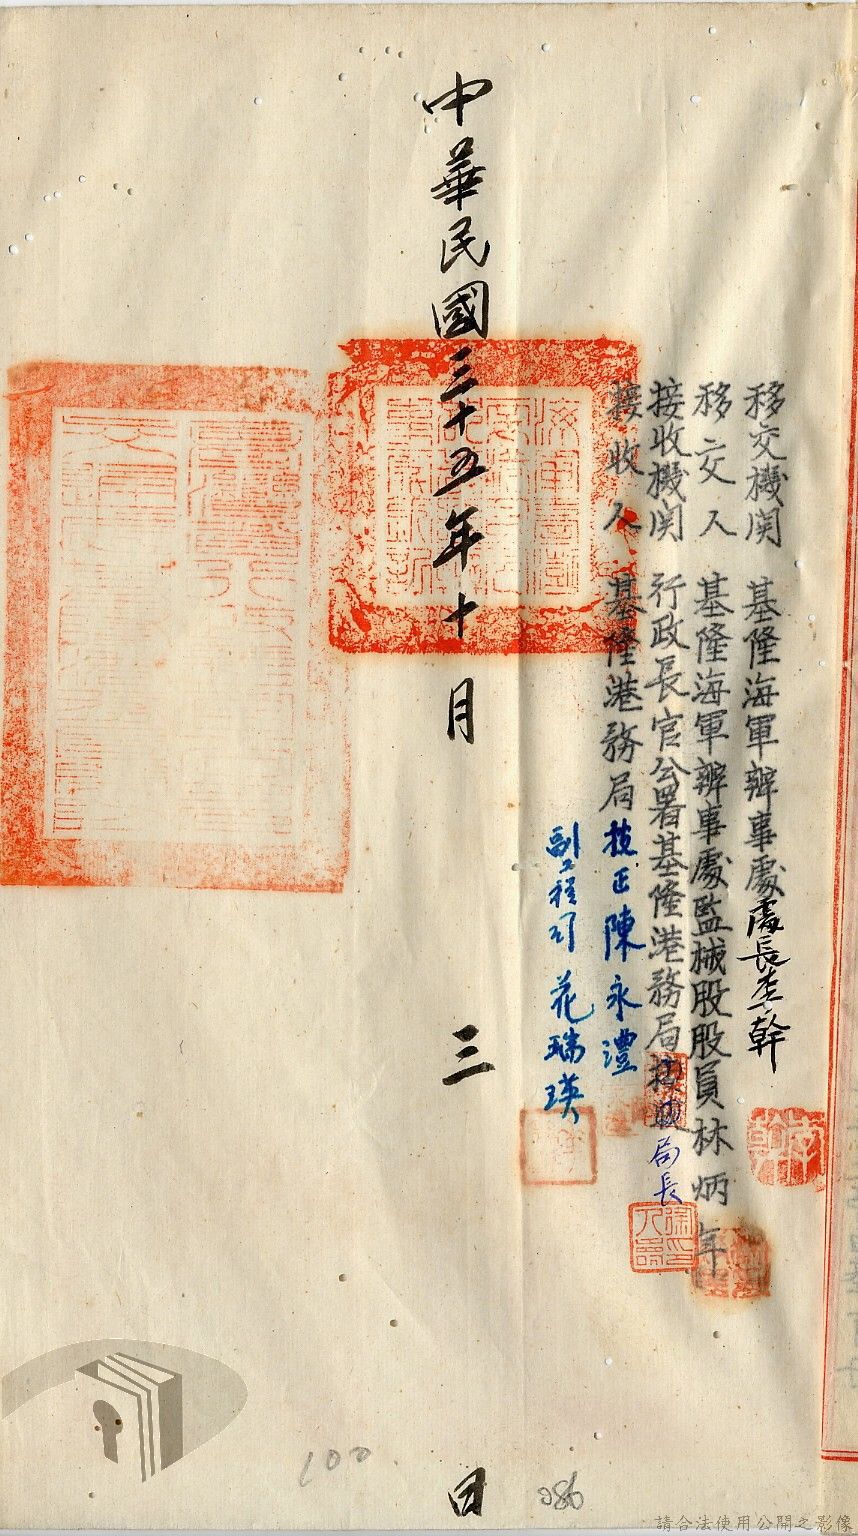 移交機関 基隆海軍辦事處處長李幹
移交人 基隆海軍辦事處監械股股員林炳年
接收機関 行政長官公署基隆港務局 局長
接收人 基隆港務局技正陳永澧
副工程司 花瑞瑛
中華民國三十五年十月三日
100
086
請合法使用公開之影像